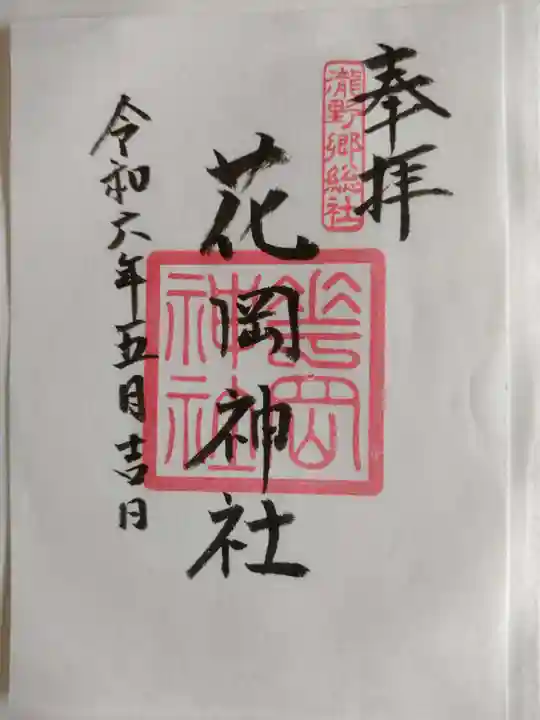 奉拝
瀧野郷総社
花岡神社
花岡
神社
令和六年五月吉日